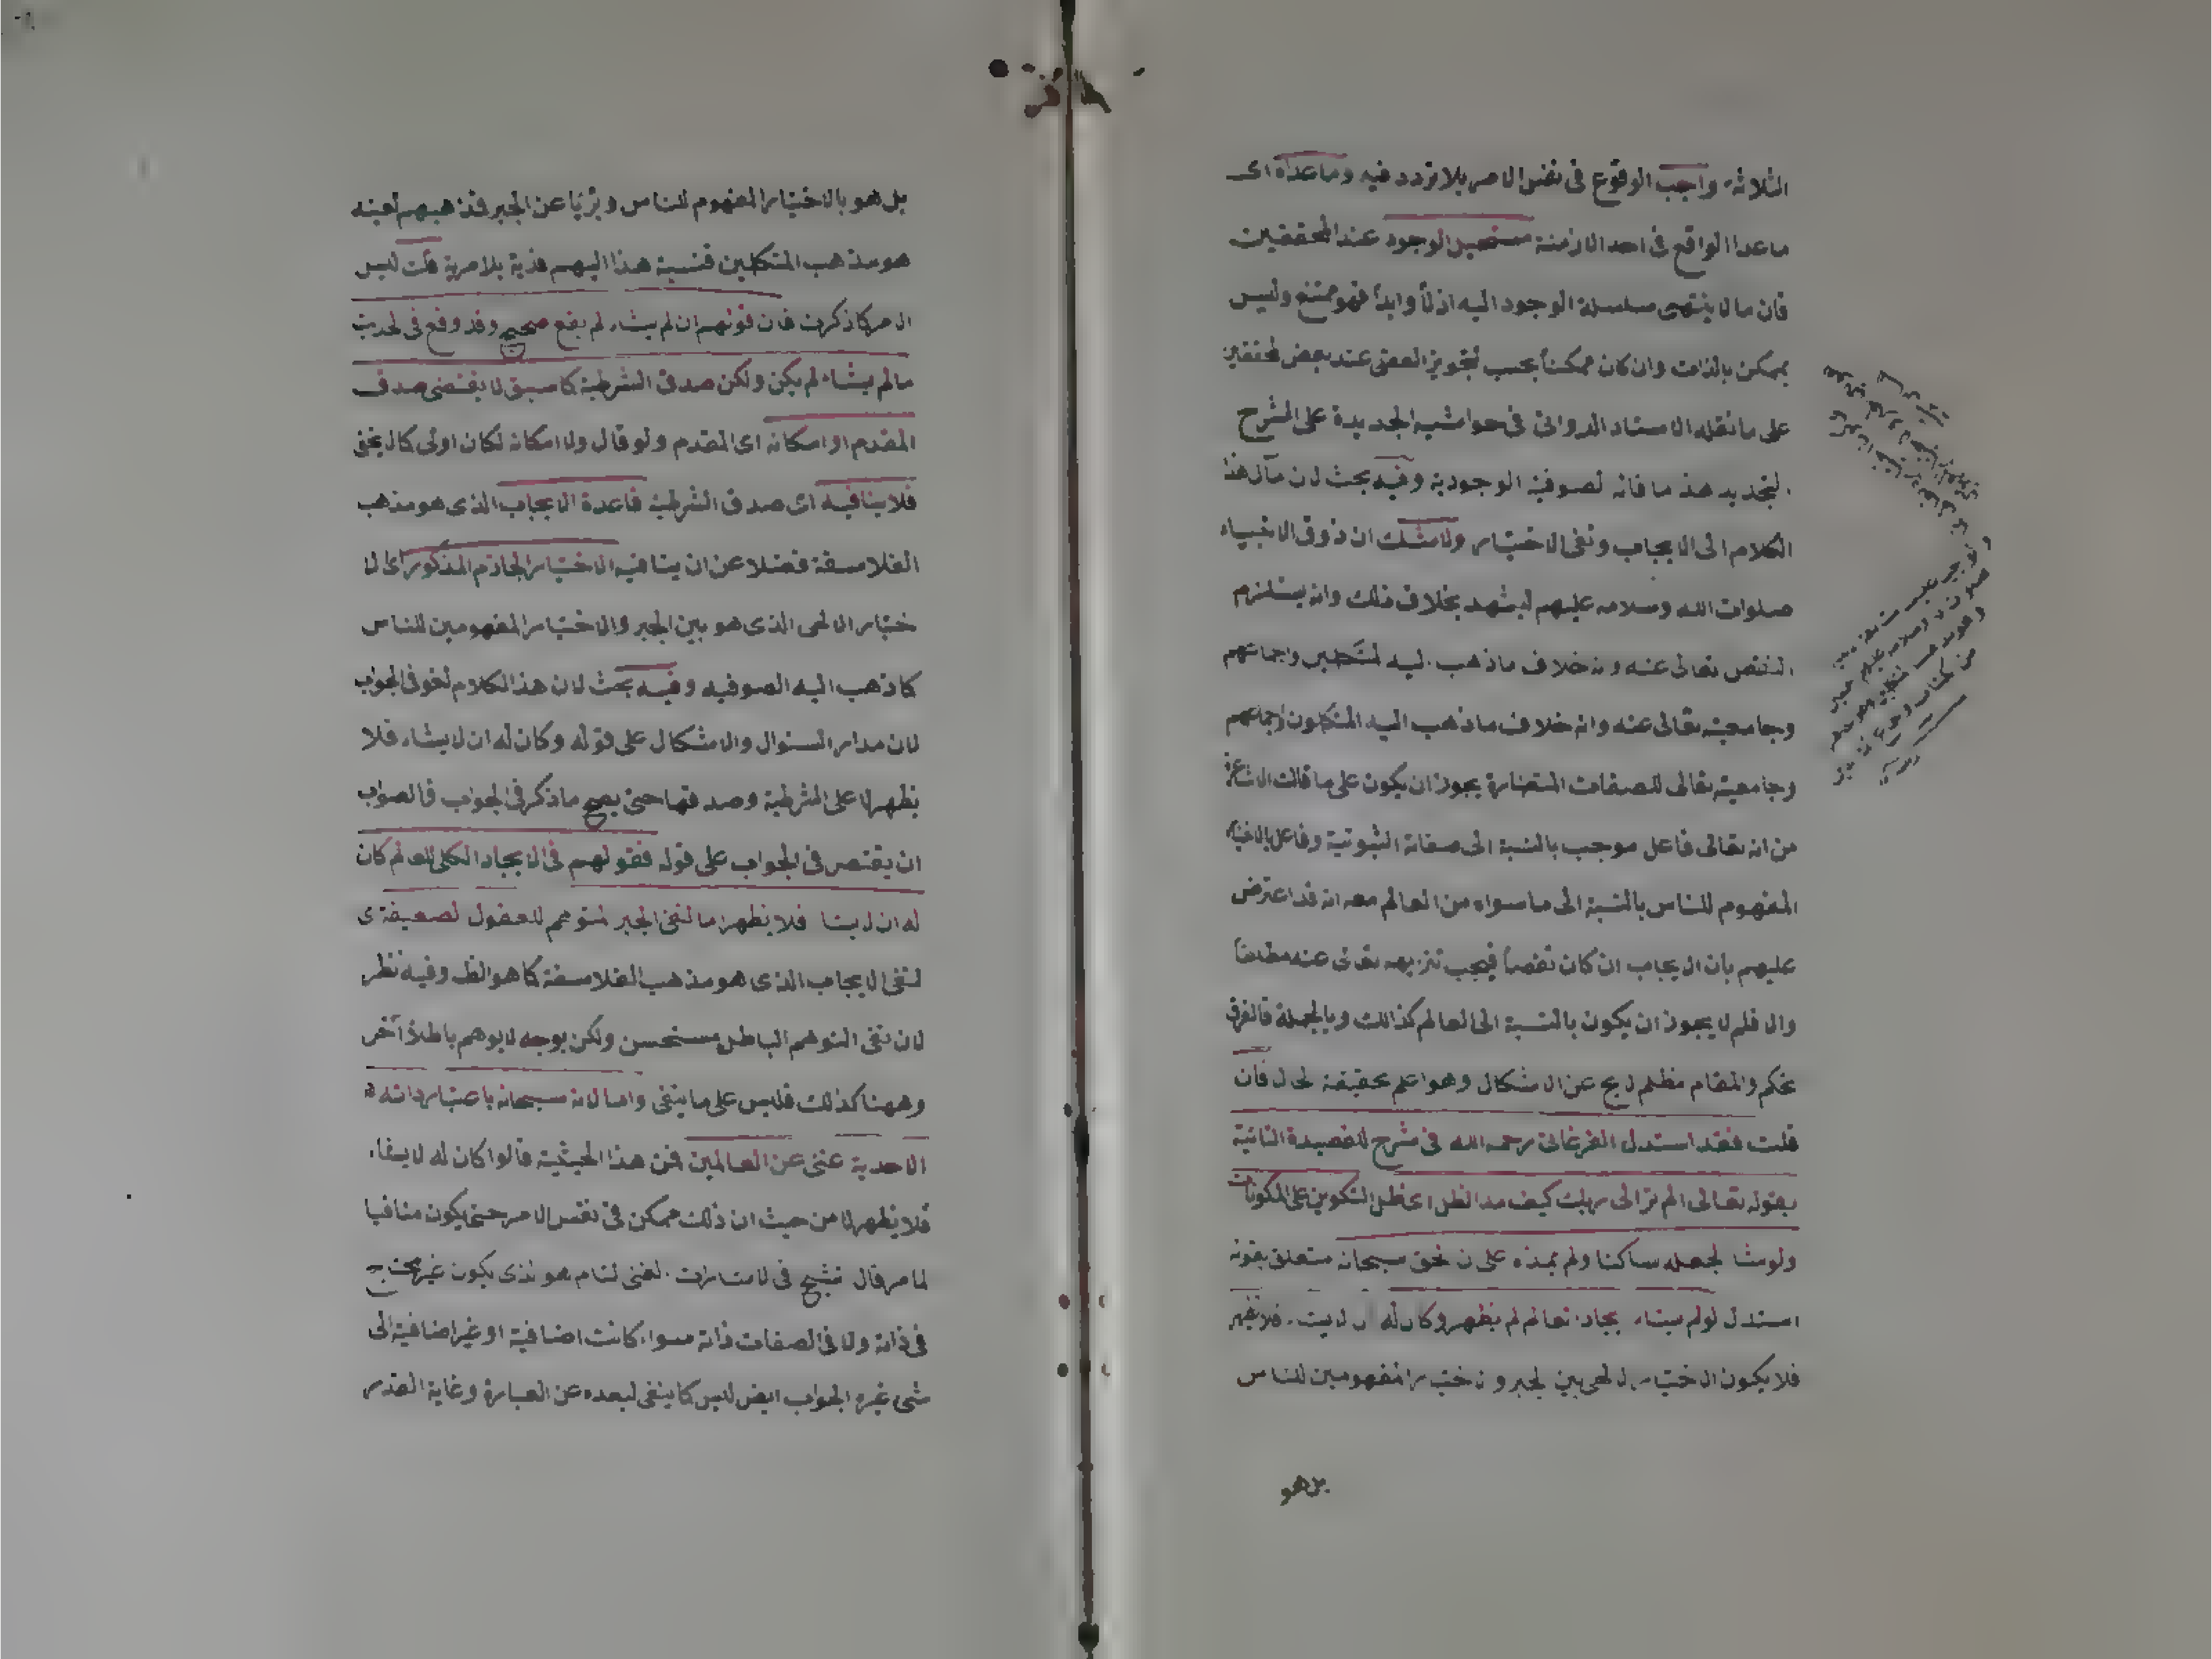 الثلاثة واجب الوقوع فى نفس الامر بلا تردد فيه وما عداه اى
ما عدا الواقع فى احد الازمنة مستحيل الوجود عند المحققين
فان ما لا ينتهى سلسلة الوجود اليه ازلاً وابداً فهو ممتنع وليس
بممكن بالذات وان كان ممكناً بحسب تجويز العقل عند بعض المحققين
على ما نقله الاستاد الدوانى فى حواشيه الجديدة على الشرح
الجديد هذا ما قاله الصوفية الوجودية وفيه بحث لان مآل هذا
الكلام الى الايجاب ونفى الاختيار ولا شك ان ذوق الانبياء
صلوات الله وسلامه عليهم ليشهد بخلاف ذلك وانه يستلزم
النقص تعالى عنه وانه خلاف ما ذهب اليه المتكلمين واجماعهم
وجامعيته تعالى عنه وانه خلاف ما ذهب اليه المتكلمون اجماعهم
وجامعيته تعالى للصفات المتضارة يجوز ان يكون على ما قالت الاشاعرة
من انه تعالى فاعل موجب بالنسبة الى صفاته الثبوتية وفاعل بالاختيار
المفهوم للناس بالنسبة الى ما سواه من العالم معه انه قد اعترض
عليهم بان الايجاب ان كان نقصاً فيجب تنزيهه تعالى عنه مطلقاً
والا فلم لا يجوز ان يكون بالنسبة الى العالم كذلك وبالجملة فالفرق
تحكم والمقام مظلم لا يخ عن الاشكال وهو اعلم بحقيقة الحال فان
قلت فقد استدل الفرغانى رحمه الله فى شرح للقصيدة التائية
بقوله تعالى الم تر الى ربك كيف مد الظل اى ظل التكوين على المكونات
ولو شاء لجعله ساكنا ولم يمده على ان الحق سبحانه متعلق بقوله
استدل لو لم يشاء ايجاد العالم لم يظهر وكان له ان لا يشاء فلا يظهر
فلا يكون الاختيار الالهى بين الجبر والاختيار المفهومين للناس
بل هو
بل هو بالاختيار المفهوم للناس وبريّا عن الجبر فمذهبهم بعينه
هو مذهب المتكلمين فنسبة هذا اليهم فرية بلا مرية قلت ليس
الامر كما ذكرت فان قولهم ان لم يشاء لم يقع صحيح وقد وقع فى الحديث
ما لم يشاء لم يكن ولكن صدق الشرطية كما سبق لا يقتضى صدق
المقدم او امكانه اى المقدم ولو قال ولا امكانه لكان اولى كما لا يخفى
فلا ينافيه اى صدق الشرطية قاعدة الايجاب الذى هو مذهب
الفلاسفة فضلا عن ان ينافيه الاختيار الجازم المذكور اى الا
ختيار الالهى الذى هو بين الجبر والاختيار المفهومين للناس
كما ذهب اليه الصوفيه وفيه بحث لان هذا الكلام لغو فى الجواب
لان مدار السئوال والاشكال على قوله وكان له ان لا يشاء فلا
يظهر لا على الشرطية وصدقها حتى يصح ما ذكر فى الجواب فالصواب
ان يقتصر فى الجواب على قوله فقولهم فى الايجاد الكلى للعالم كان
له ان لا يشاء فلا يظهر اما لنفى الجبر المتوهم للعقول الضعيفة اى
لنفى الايجاب الذى هو مذهب الفلاسفة كما هو الظ وفيه نظر
لان نفى التوهم الباطل مستحسن ولكن بوجه لا يوهم باطلاً آخر
وههنا كذلك فليس على ما ينبغى واما لانه سبحانه باعتبار ذاته
الاحدية غنى عن العالمين فمن هذا الحيثية قالوا كان له لا يشاء
فلا يظهر لا من حيث ان ذلك ممكن فى نفس الامر حتى يكون منافيا
لما مر قال الشيخ فى الاشارات الغنى التام هو الذى يكون غير محتاج
فى ذاته ولا فى الصفات ذاته سواء كانت اضافية او غير اضافية الى
شئ غيره الجواب ايض ليس كما ينبغى لبعده عن العبارة وغاية العذر